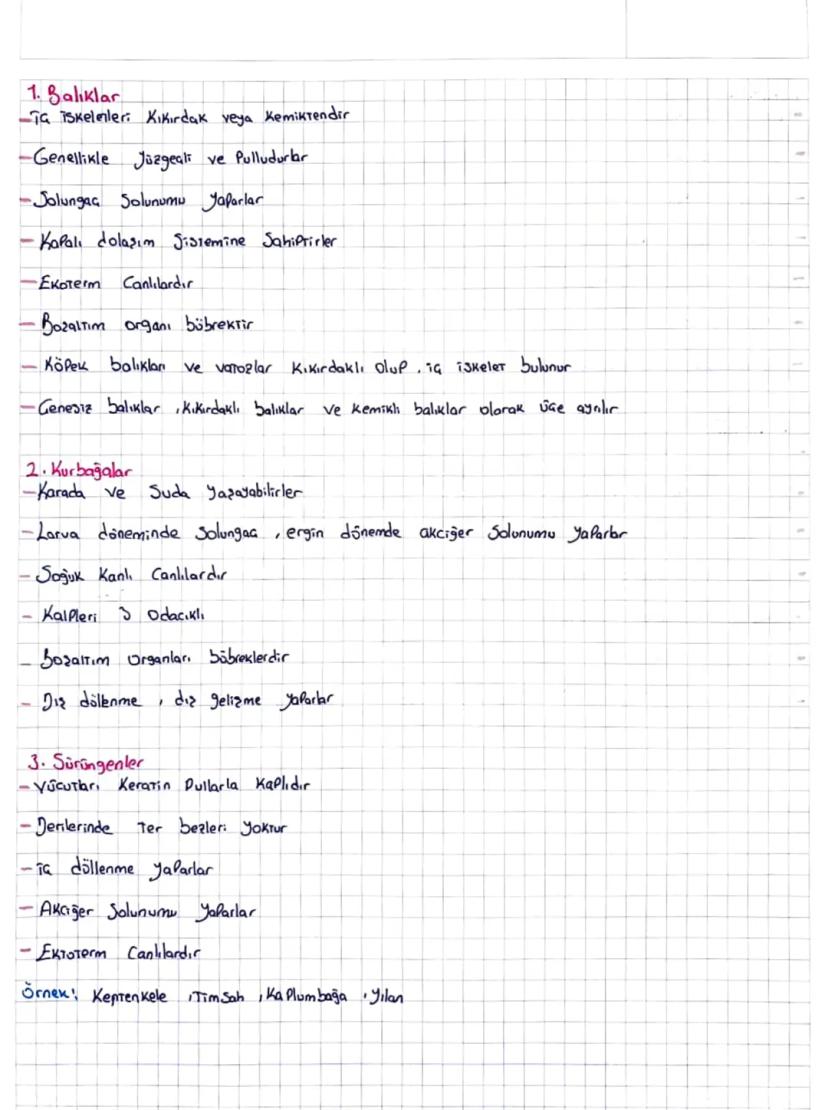 1. Balıklar
- İç iskeletleri Kıkırdak veya kemiktendir
- Genellikle yüzgeçli ve Pulludurlar
- Solungaç Solunumu yaparlar
- Kapalı dolaşım Sistemine Sahiptirler
- Ekoterm Canlılardır
- Boşaltım organı böbrektir
- Köpek balıkları ve vatozlar Kıkırdaklı olup, iç iskelet bulunur
- Çenesiz balıklar, Kıkırdaklı balıklar ve kemikli balıklar olarak üçe ayrılır
2. Kurbağalar
- Karada ve Suda yaşayabilirler
- Larva döneminde Solungaç, ergin dönemde akciğer Solunumu yaparlar
- Soğuk Kanlı Canlılardır
- Kalpleri 3 Odacıklı
- Boşaltım Organları böbreklerdir
- Dış döllenme, dış gelişme yaparlar
3. Sürüngenler
- Vücutları Keratin Pullarla Kaplıdır
- Derilerinde Ter bezleri yoktur
- İç döllenme yaparlar
- Akciğer Solunumu yaparlar
- Ektoterm Canlılardır
Örnek: Kertenkele, Timsah, Kaplumbağa, yılan